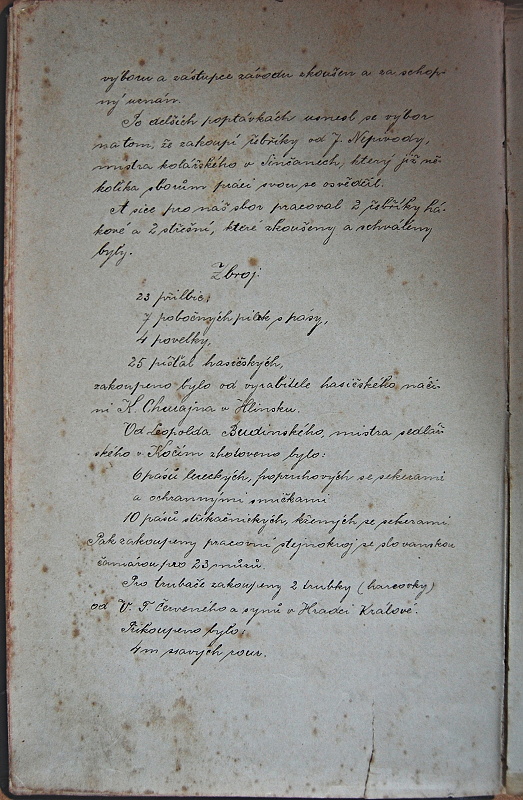 výboru a zástupce závodu zkoušen a za schop-
ný uznán.
Po delších poptávkách usnesl se výbor
na tom, že zakoupí žebříky od J. Neprivody,
mistra kolářského v Sinčanech, který již ně-
kolika sborům prácí svou se osvědčil.
A sice pro náš sbor pracoval 2 žebříky há-
kové a 2 střešní, které zkoušeny a schváleny
byly.
Zbroj
23 přilbic,
7 pobočných pilek s pásy,
4 povelky,
25 píšťal hasičských,
zakoupeno bylo od vyrabitele hasičského náči-
ní K. Chvajna v Hlinsku.
Od Leopolda Budinského, mistra sedlář-
ského v Kočím zhotoveno bylo:
6 pásů lezeckých, popruhových se sekerami
a ochrannými smičkami
10 pásů stříkačnických, kžených se sekerami
Pak zakoupeny pracovní stejnokroj se slovanskou
čamarou pro 23 mužů.
Pro trubače zakoupeny 2 trubky (harcovky)
od V. F. Červeného a synů v Hradci Králové.
Přikoupeno bylo:
4 m ssavých rour.